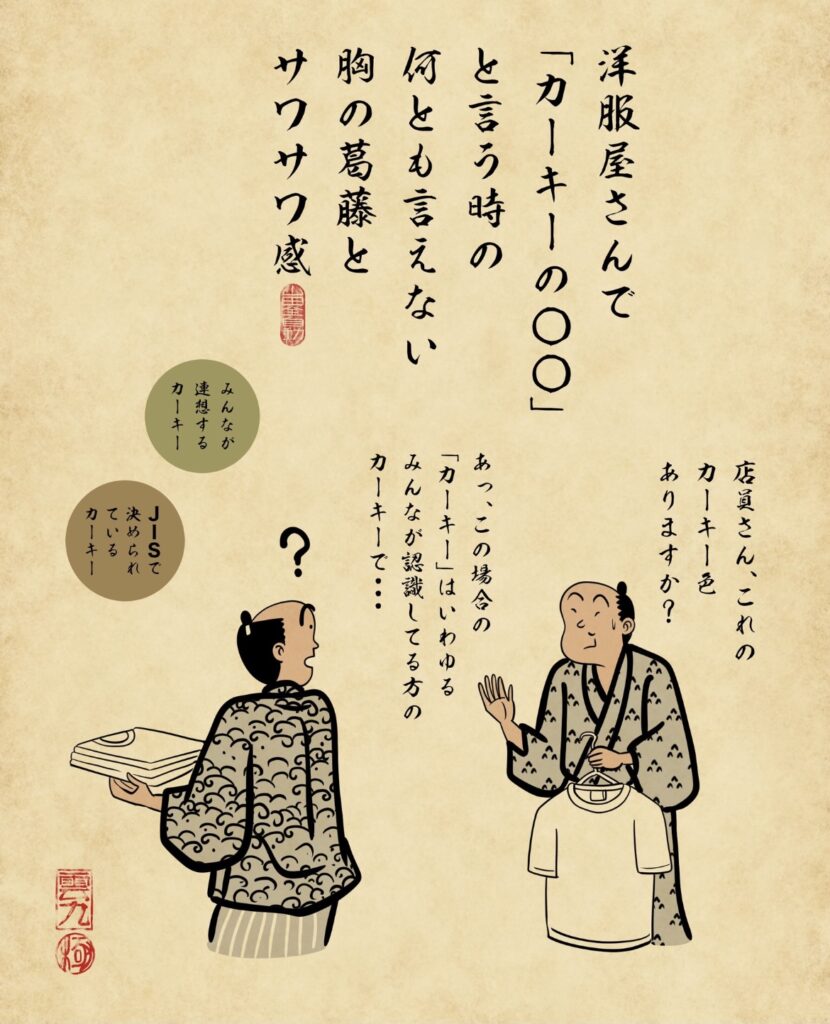 洋服屋さんで
「カーキーの〇〇」
と言う時の
何とも言えない
胸の葛藤と
サワサワ感
店員さん、これの
カーキー色
ありますか？
あっ、この場合の
「カーキー」はいわゆる
みんなが認識してる方の
カーキーで・・・
みんなが
連想する
カーキー
JISで
決められ
ている
カーキー
?